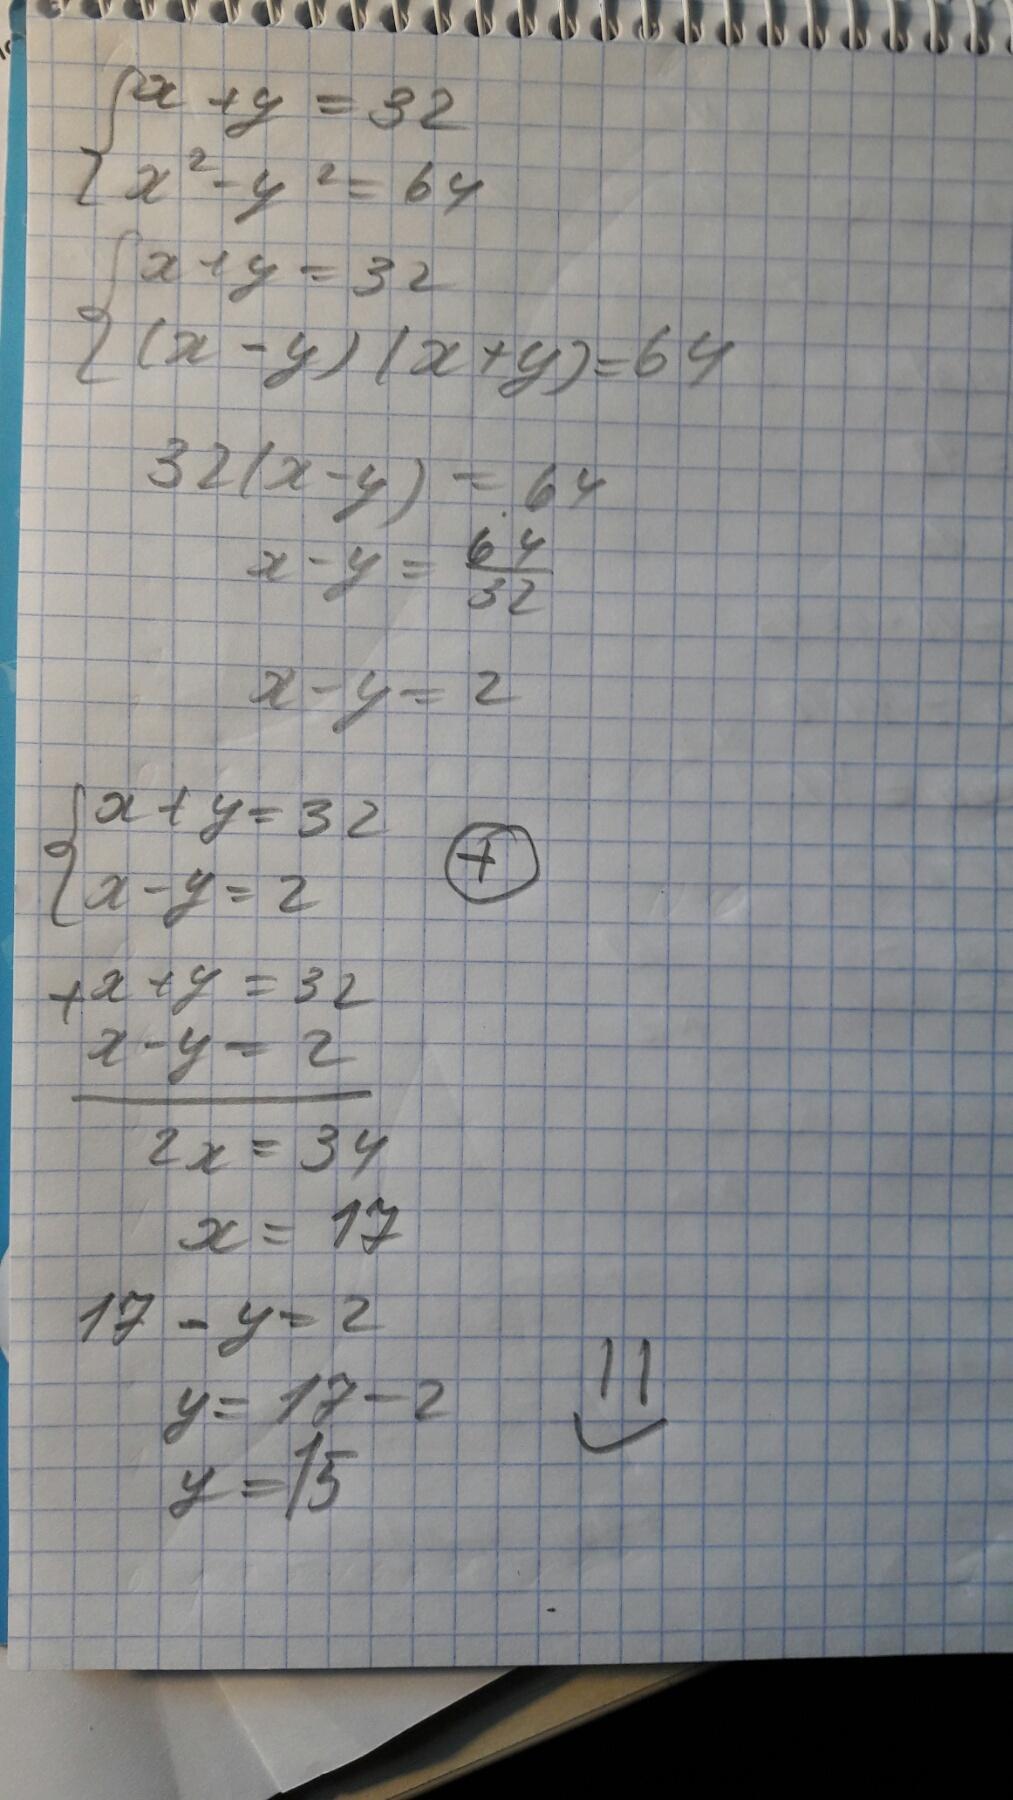 {x + y = 32
{x² - y² = 64
{x + y = 32
{(x - y)(x + y) = 64
32(x - y) = 64
x - y = 64/32
x - y = 2
{x + y = 32
{x - y = 2 (+)
+ x + y = 32
x - y = 2
2x = 34
x = 17
17 - y = 2
y = 17 - 2
y = 15